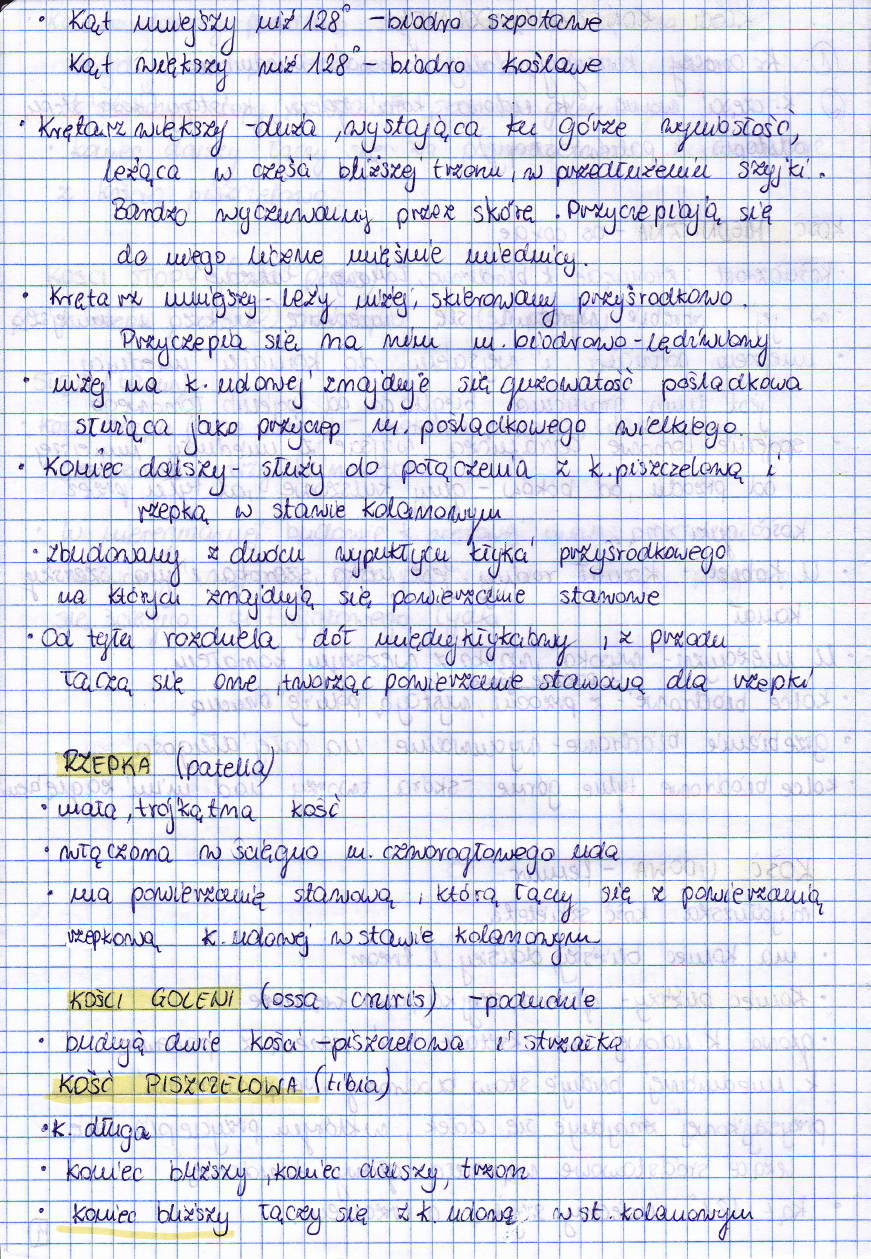 • Kąt mniejszy niż 128° - biodro szpotawe
Kąt większy niż 128° - biodro koślawe
• Krętarz większy - duża, wystająca ku górze wyniosłość,
leżąca w części bliższej trzonu, w przedłużeniu szyjki.
Bardzo wyczuwalny przez skórę. Przyczepiają się
do niego liczne mięśnie miednicy.
• Krętarz mniejszy - leży niżej, skierowany przyśrodkowo.
Przyczepia się na nim m. biodrowo-lędźwiowy
• niżej na k. udowej znajduje się guzowatość pośladkowa
służąca jako przyczep m. pośladkowego wielkiego.
• Koniec dalszy - służy do połączenia z k. piszczelową i
rzepką w stawie kolanowym
• zbudowany z dwóch wypukłych kłykci przyśrodkowego
na których znajdują się powierzchnie stawowe
• Od tyłu rozdziela dół międzykłykciowy, z przodu
łączą się one, tworząc powierzchnie stawową dla rzepki
RZEPKA (patella)
• mała, trójkątna kość
• włączona w ścięgno m. czworogłowego uda
• ma powierzchnię stawową, którą łączy się z powierzchnią
rzepkową k. udowej w stawie kolanowym
KOŚCI GOLENI (ossa cruris) - podudzie
• budują dwie kości - piszczelowa i strzałka
KOŚĆ PISZCZELOWA (tibia)
• k. długa
• koniec bliższy, koniec dalszy, trzon
• koniec bliższy łączy się z k. udową w st. kolanowym